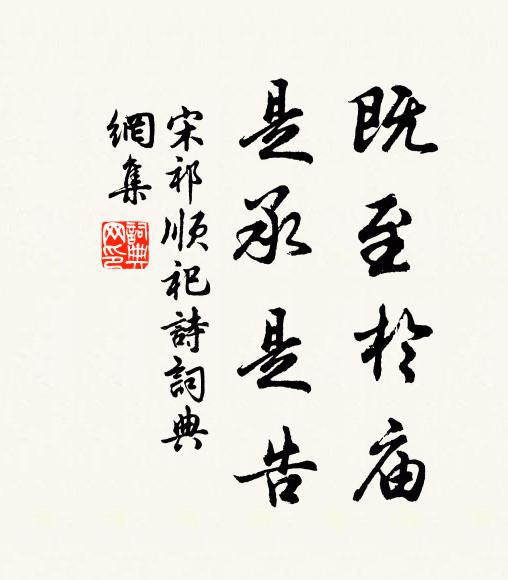 既至於庙
是承是告
宋祁顺祀詩詞典
網集
詞典
网印